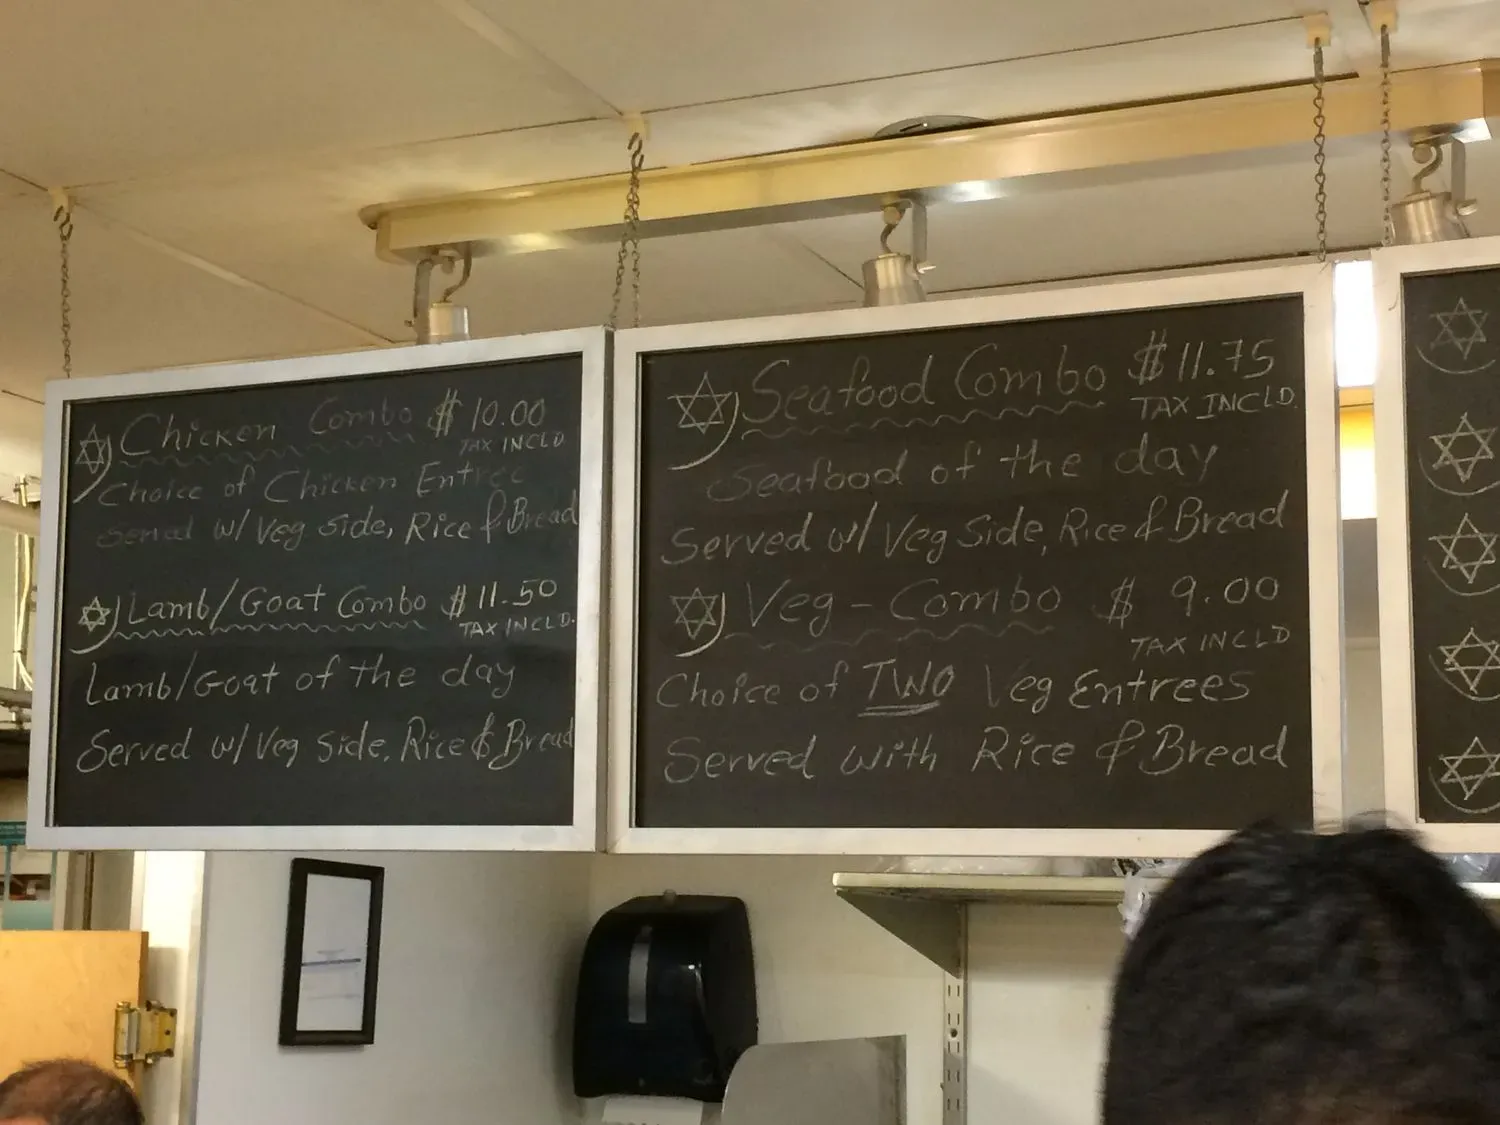 Chicken Combo $10.00
TAX INCLD
Choice of Chicken Entree
Served w/ Veg Side, Rice & Bread
Lamb/Goat Combo $11.50
TAX INCLD.
Lamb/Goat of the day
Served w/ Veg Side, Rice & Bread
Seafood Combo $11.75
TAX INCLD.
Seafood of the day
Served w/ Veg Side, Rice & Bread
Veg-Combo $9.00
TAX INCLD
Choice of TWO Veg Entrees
Served with Rice & Bread